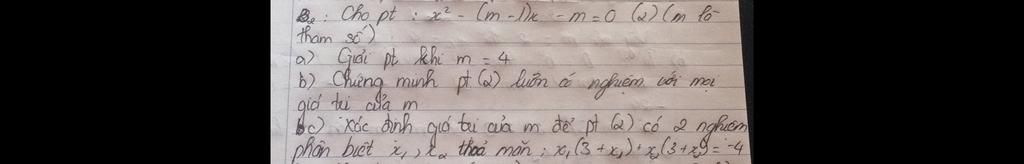 B2: Cho pt : x² - (m - 1)x - m = 0 (2) (m là
tham số)
a) Giải pt khi m = 4
b) Chứng minh pt (2) luôn có nghiệm với mọi
giá trị của m
c) Xác định giá trị của m để pt (2) có 2 nghiệm
phân biệt x₁, x₂ thoả mãn : x₁(3 + x₁) + x₂(3 + x₂) = -4